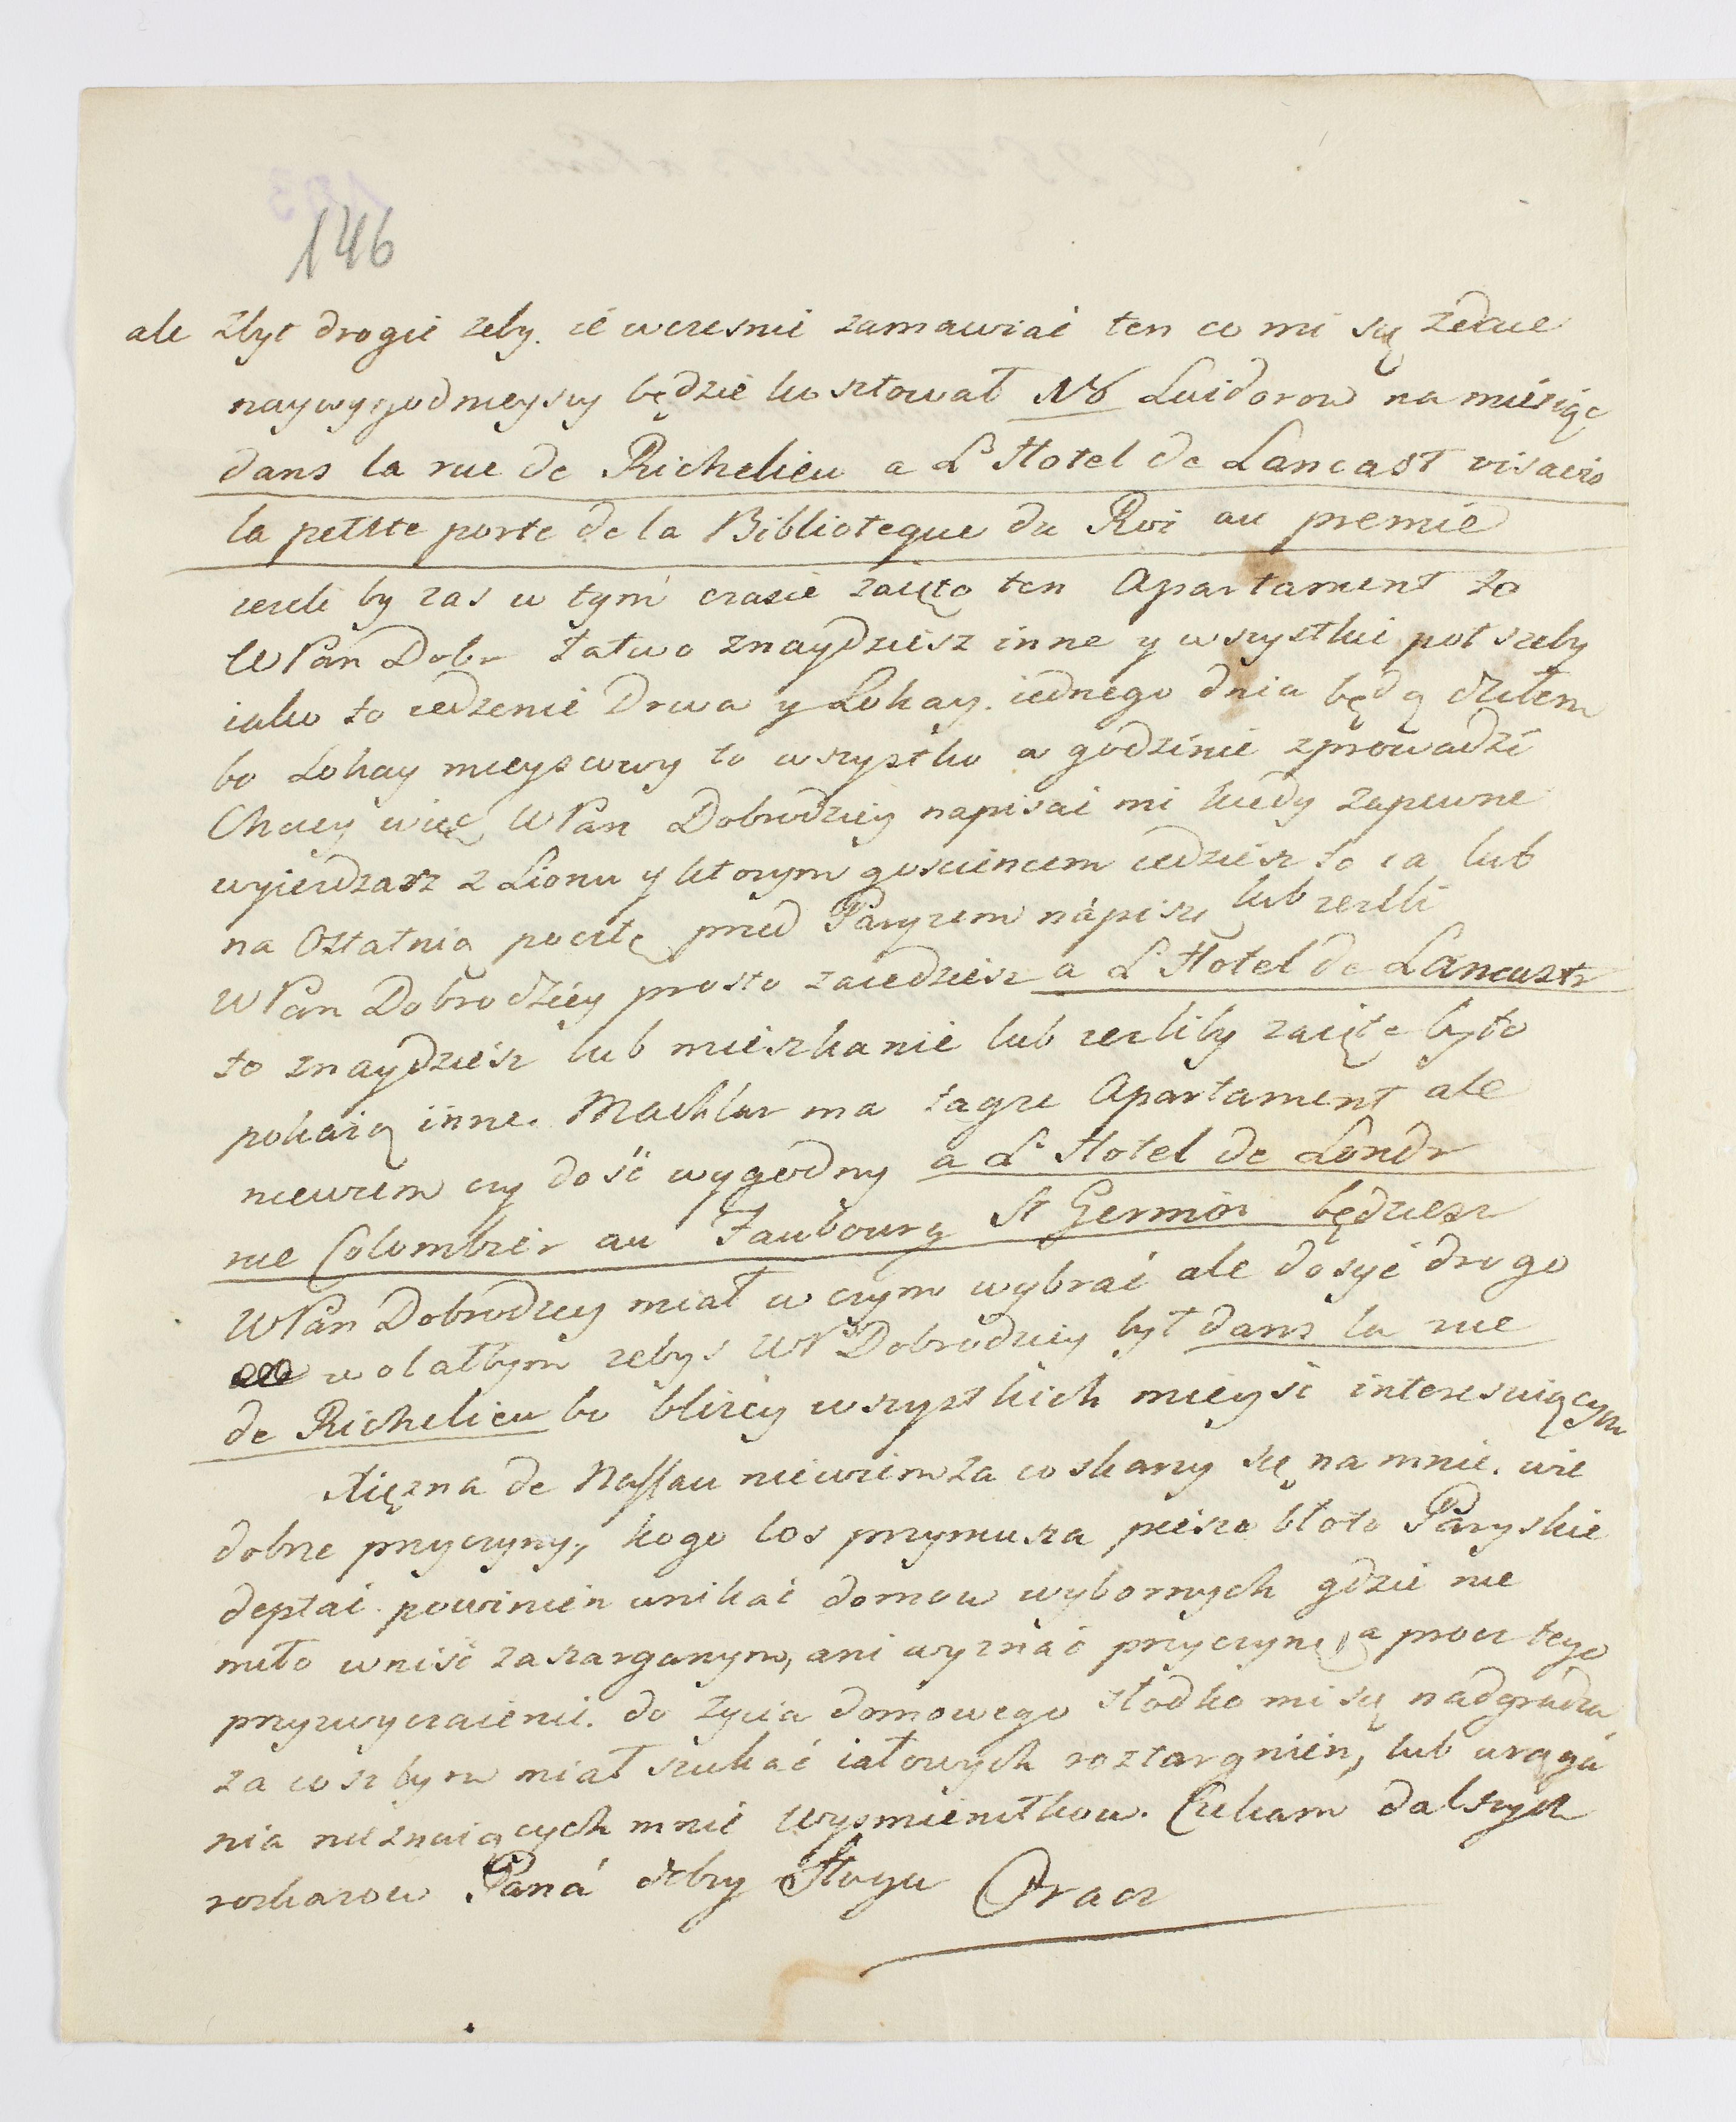 146
ale zbyt drogie zeby ie wczesnie zamawiać ten co mi się zdaie
naywygodnieyszy będzie kosztował 18 Luidorow na miesiąc
dans la rue de Richelieu a L'Hotel de Lancast visavis
la petite porte de la Biblioteque du Roi au premie
iezeli by zas w tym czasie zaięto ten Apartament to
WPan Dobr łatwo znaydziesz inne y wszystkie potrzeby
iako to iedzenie Drwa y Lokay. iednego dnia będą dziełem
bo Lokay mieyscowy to wszystko w godzinie zprowadzi
Chciey więc WPan Dobrodziey napisać mi kiedy zapewne
wyiezdzasz z Lionu y ktorym goscincem iedziesz to ia lub
na Ostatnią pocztę przed Paryzem nápiszę lub iezeli
WPan Dobrodziey prosto zaiedziesz a L'Hotel de Lancastr
to znaydziesz lub mieszkanie lub iezliby zaięte było
pokaią inne. Machlar ma także Apartament ale
niewiem czy dość wygodny a L'Hotel de Londr
rue Colombier au Faubourg St Germin będziesz
WPan Dobrodziey miał w czym wybrać ale dosyć drogo
wolałbym zebys WP Dobrodziey był dans la rue
de Richelieu bo bliżey wszystkich mieysc interesuiącym
Xiężna de Nassau niewiem za co skarzy się na mnie. wie
dobrze przyczyny, kogo los przymusza pieszo błoto Paryskie
deptać powinien unikać domow wybornych gdzie nie
miło wniść zaszarganym, ani wyznać przyczynę, a procz tego
przyzwyczaienie. do życia domowego słodko mi się nadgradza
za coz bym miał szukać iałowych roztargnien, lub urąga
nia nieznaiących mnie Wysmienitkow. Czekam dalszych
rozkazow Paná dobry Sługa Oracz